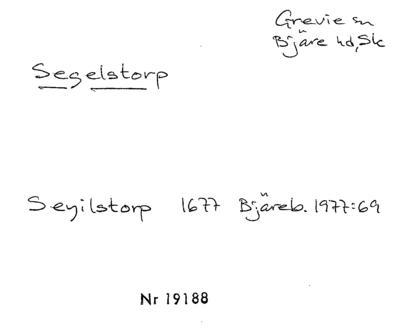 Grevie sn
Bjäre hd, Sk
Segelstorp
Seyilstorp 1677 Bjäreb. 1977:69
Nr 19188